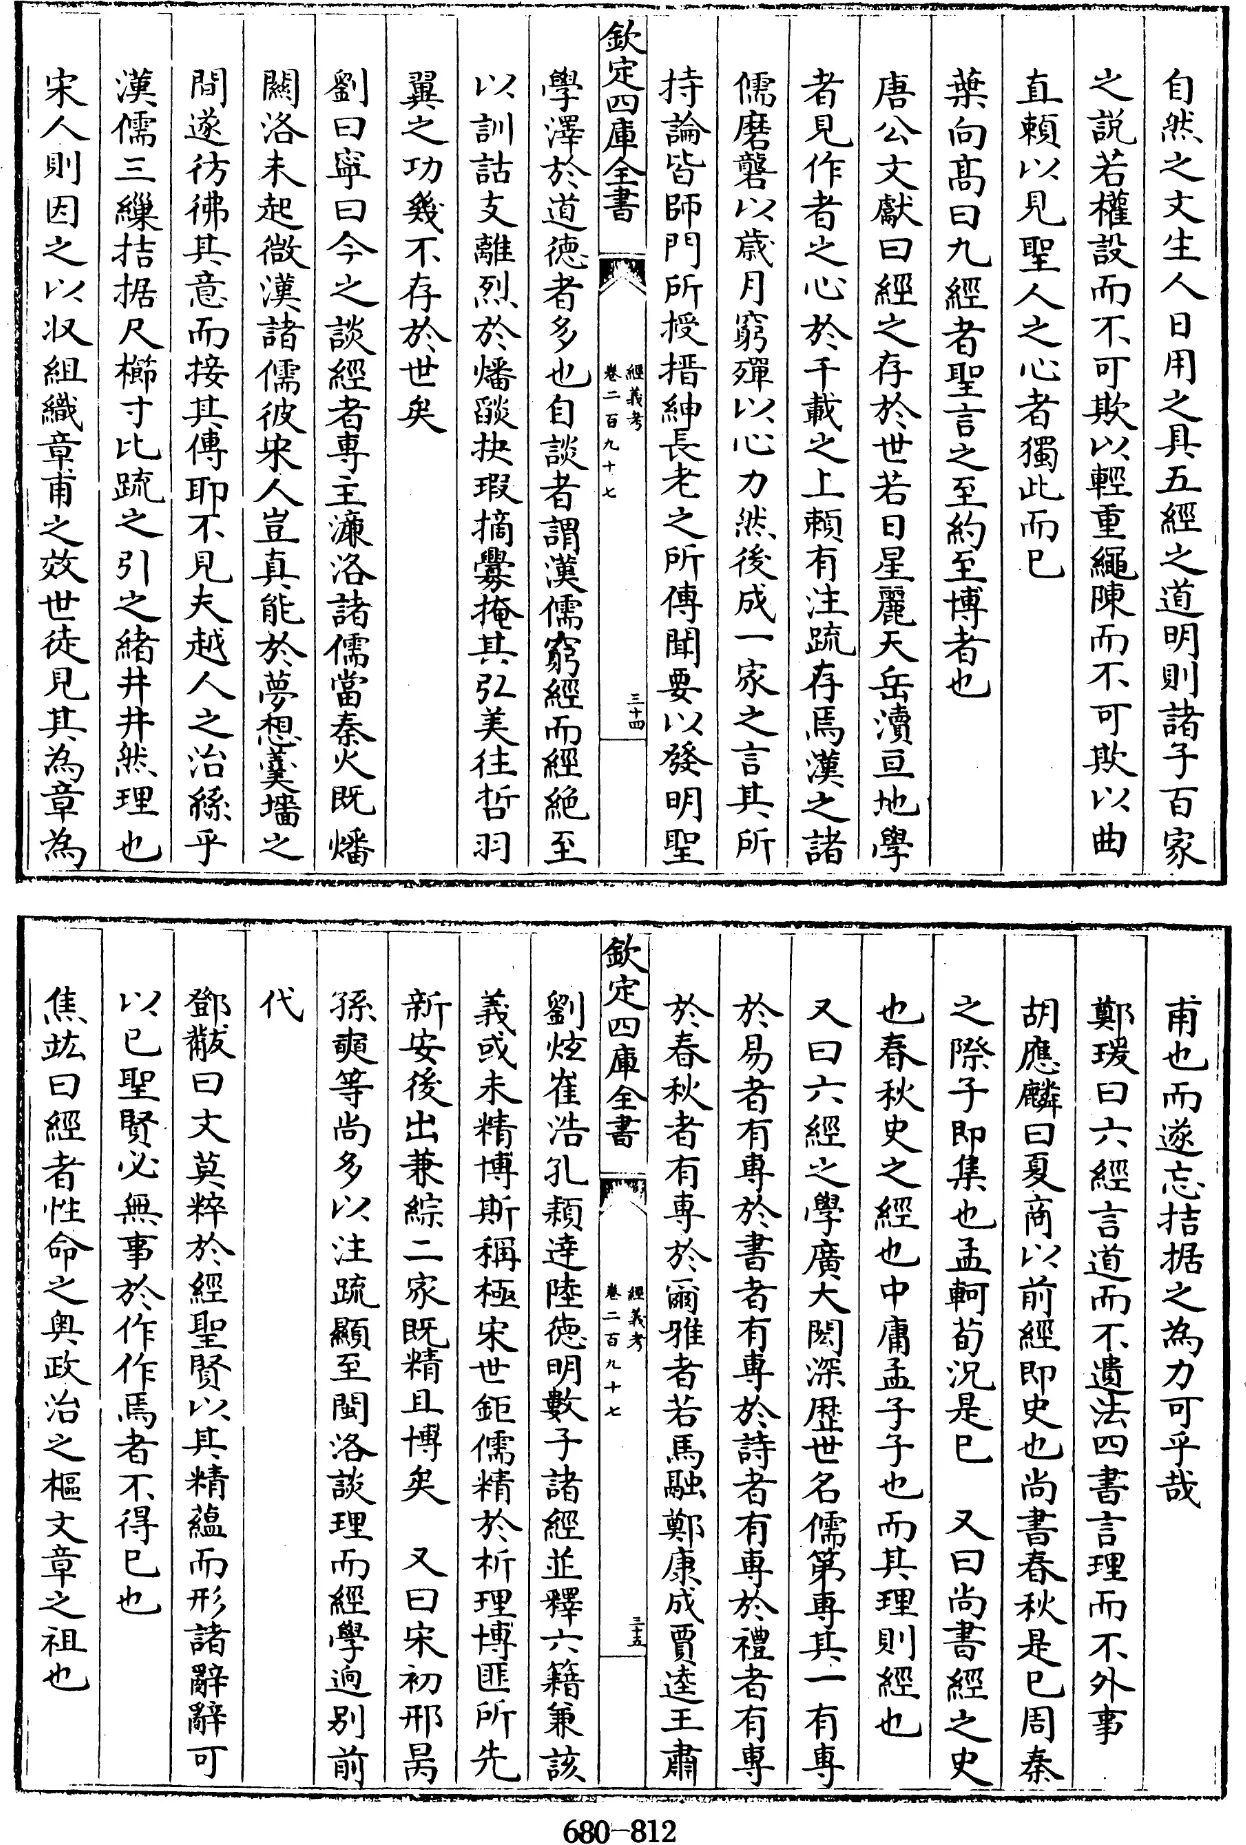 自然之文生人日用之具五經之道明則諸子百家
之説若權設而不可欺以輕重繩陳而不可欺以曲
直頼以見聖人之心者獨此而已
葉向髙曰九經者聖言之至約至博者也
唐公文獻曰經之存於世若日星麗天岳瀆亘地學
者見作者之心於千載之上頼有注疏存焉漢之諸
儒磨礱以歳月窮殫以心力然後成一家之言其所
持論皆師門所授搢紳長老之所傳聞要以發明聖
欽定四庫全書
經義考
卷二百九十七
三十四
學澤於道德者多也自談者謂漢儒窮經而經絶至
以訓詁支離烈於燔燄抉瑕摘釁掩其弘美往哲羽
翼之功幾不存於世矣
劉曰寧曰今之談經者專主濂洛諸儒當秦火既燔
闗洛未起微漢諸儒彼宋人豈真能於夢想羹墻之
間遂彷彿其意而接其傳耶不見夫越人之治絲乎
漢儒三繅拮据尺櫛寸比疏之引之緒井井然理也
宋人則因之以収組織章甫之效世徒見其為章為
甫也而遂忘拮据之為力可乎哉
鄭瑗曰六經言道而不遺法四書言理而不外事
胡應麟曰夏商以前經即史也尚書春秋是已周秦
之際子即集也孟軻荀況是已 又曰尚書經之史
也春秋史之經也中庸孟子子也而其理則經也
又曰六經之學廣大閎深歴世名儒第專其一有專
於易者有專於書者有專於詩者有專於禮者有專
於春秋者有專於爾雅者若馬融鄭康成賈逵王肅
欽定四庫全書
經義考
卷二百九十七
三十五
劉炫崔浩孔穎逹陸徳明數子諸經並釋六籍兼該
義或未精博斯稱極宋世鉅儒精於析理博匪所先
新安後出兼綜二家既精且博矣 又曰宋初邢昺
孫奭等尚多以注疏顯至閩洛談理而經學逈别前
代
鄧黻曰文莫粹於經聖賢以其精蘊而形諸辭辭可
以已聖賢必無事於作作焉者不得已也
焦竑曰經者性命之奥政治之樞文章之祖也
680-812